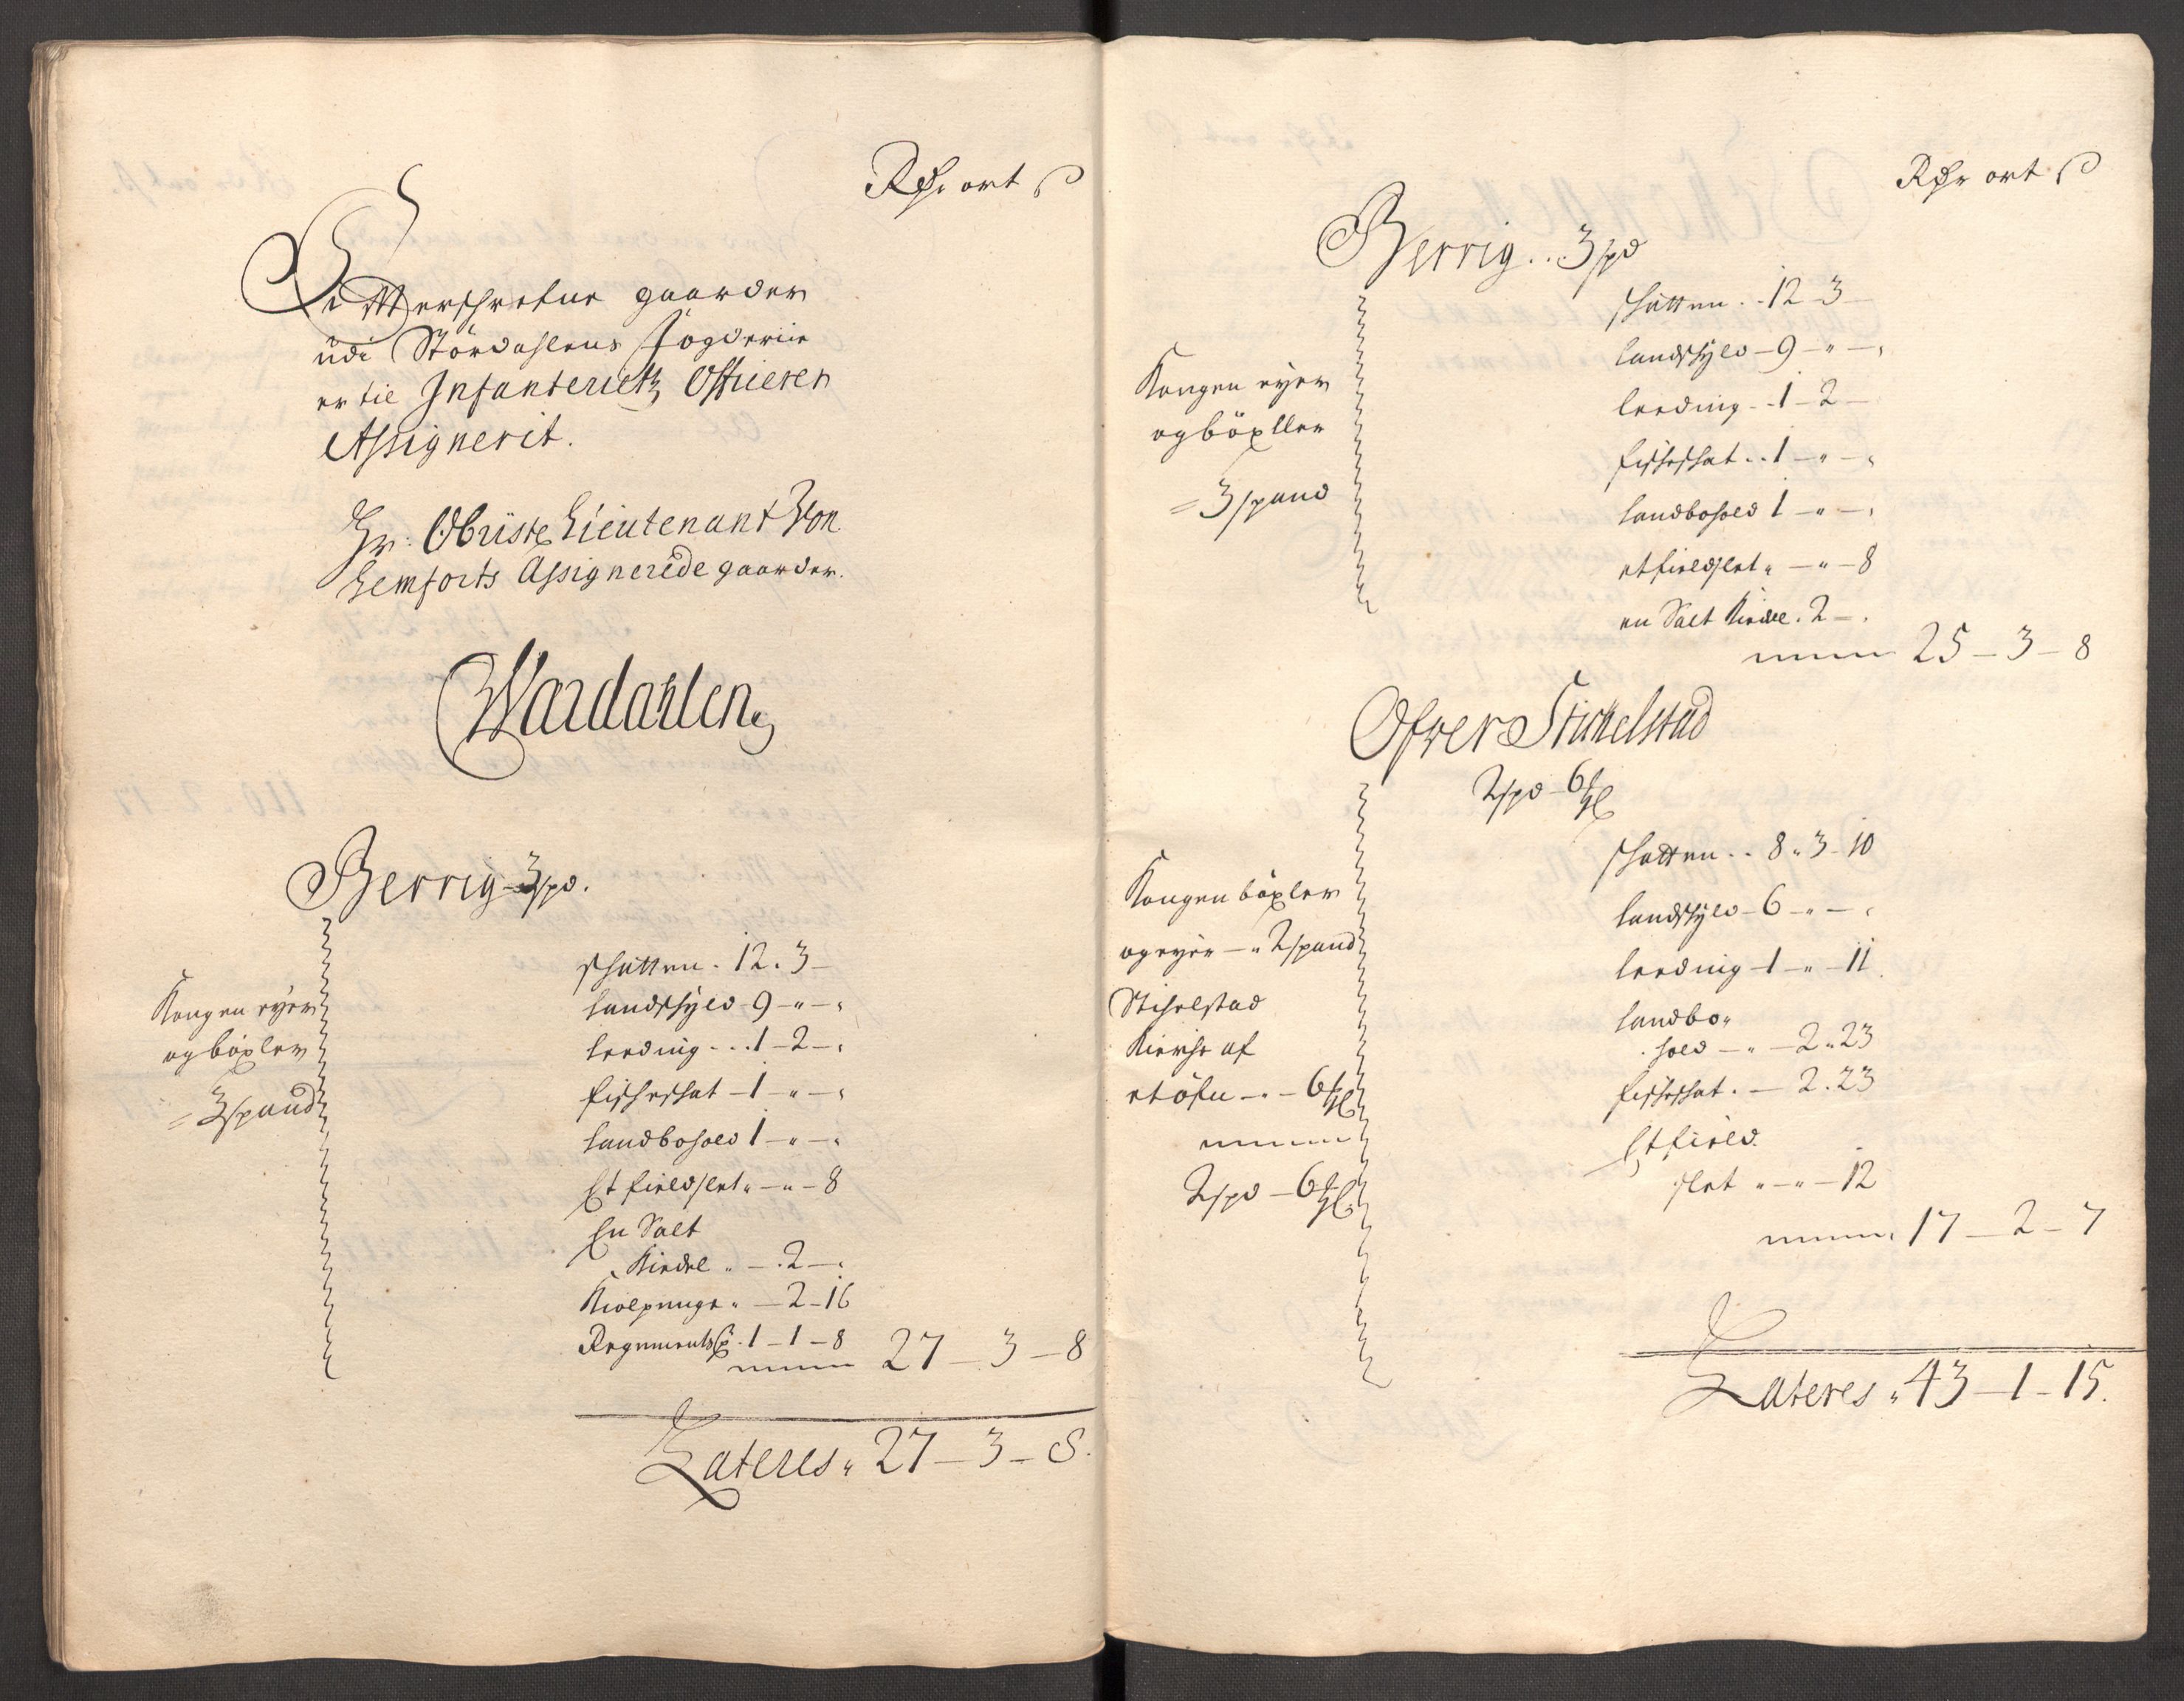 Rdr ort ß
Efterschrefne gaarder
udi Stördahlens fögderiie
er til Infanteriets Officerer
Assignerit.
Hr: Obriste Lieutenant Von
Lemforts Assignerede gaarder.
Wardahlen
Berrig - 3 spd.
Kongen eyer
og böxler
= 3 spand
schatten . 12 . 3 -
landschyld - 9 - " - "
leeding - - . 1 - 2 - "
fischeschat - 1 - " - "
landbohold 1 - " - "
Et fieldslet " - " - 8
En Salt
Kiedel " - . 2 - "
Kiolpenge " - 2 - 16
Regements . 1 - 1 - 8
27 - 3 - 8
Lateres " 27 - 3 - 8.
Rdr ort ß
Berrig . . 3 spd
Kongen eyer
og böxller
= 3 spand
schatten . . 12 - 3 -
landschyld - 9 - " - "
leeding - - 1 - 2 -
fischeschat . . 1 - " - "
landbohold 1 - " - "
et fieldslet " - " - 8
en Salt Kiedel . 2 - .
25 - 3 - 8
Ofver Stichelstad
2 spd - 6
Kongen böxler
og eyer - " 2 spand
Stichelstad
Kierche af
- . - 6
2 spd - 6
schatten . . 8 " 3 - 10
landschyld - 6 - " - "
leeding - 1 - " - 11.
landbo"
hold - " - 2 " 23
fischeschat . - 2 . 23
Et field
slet " - " - 12
17 - 2 - 7
Lateres " 43 - 1 - 15.